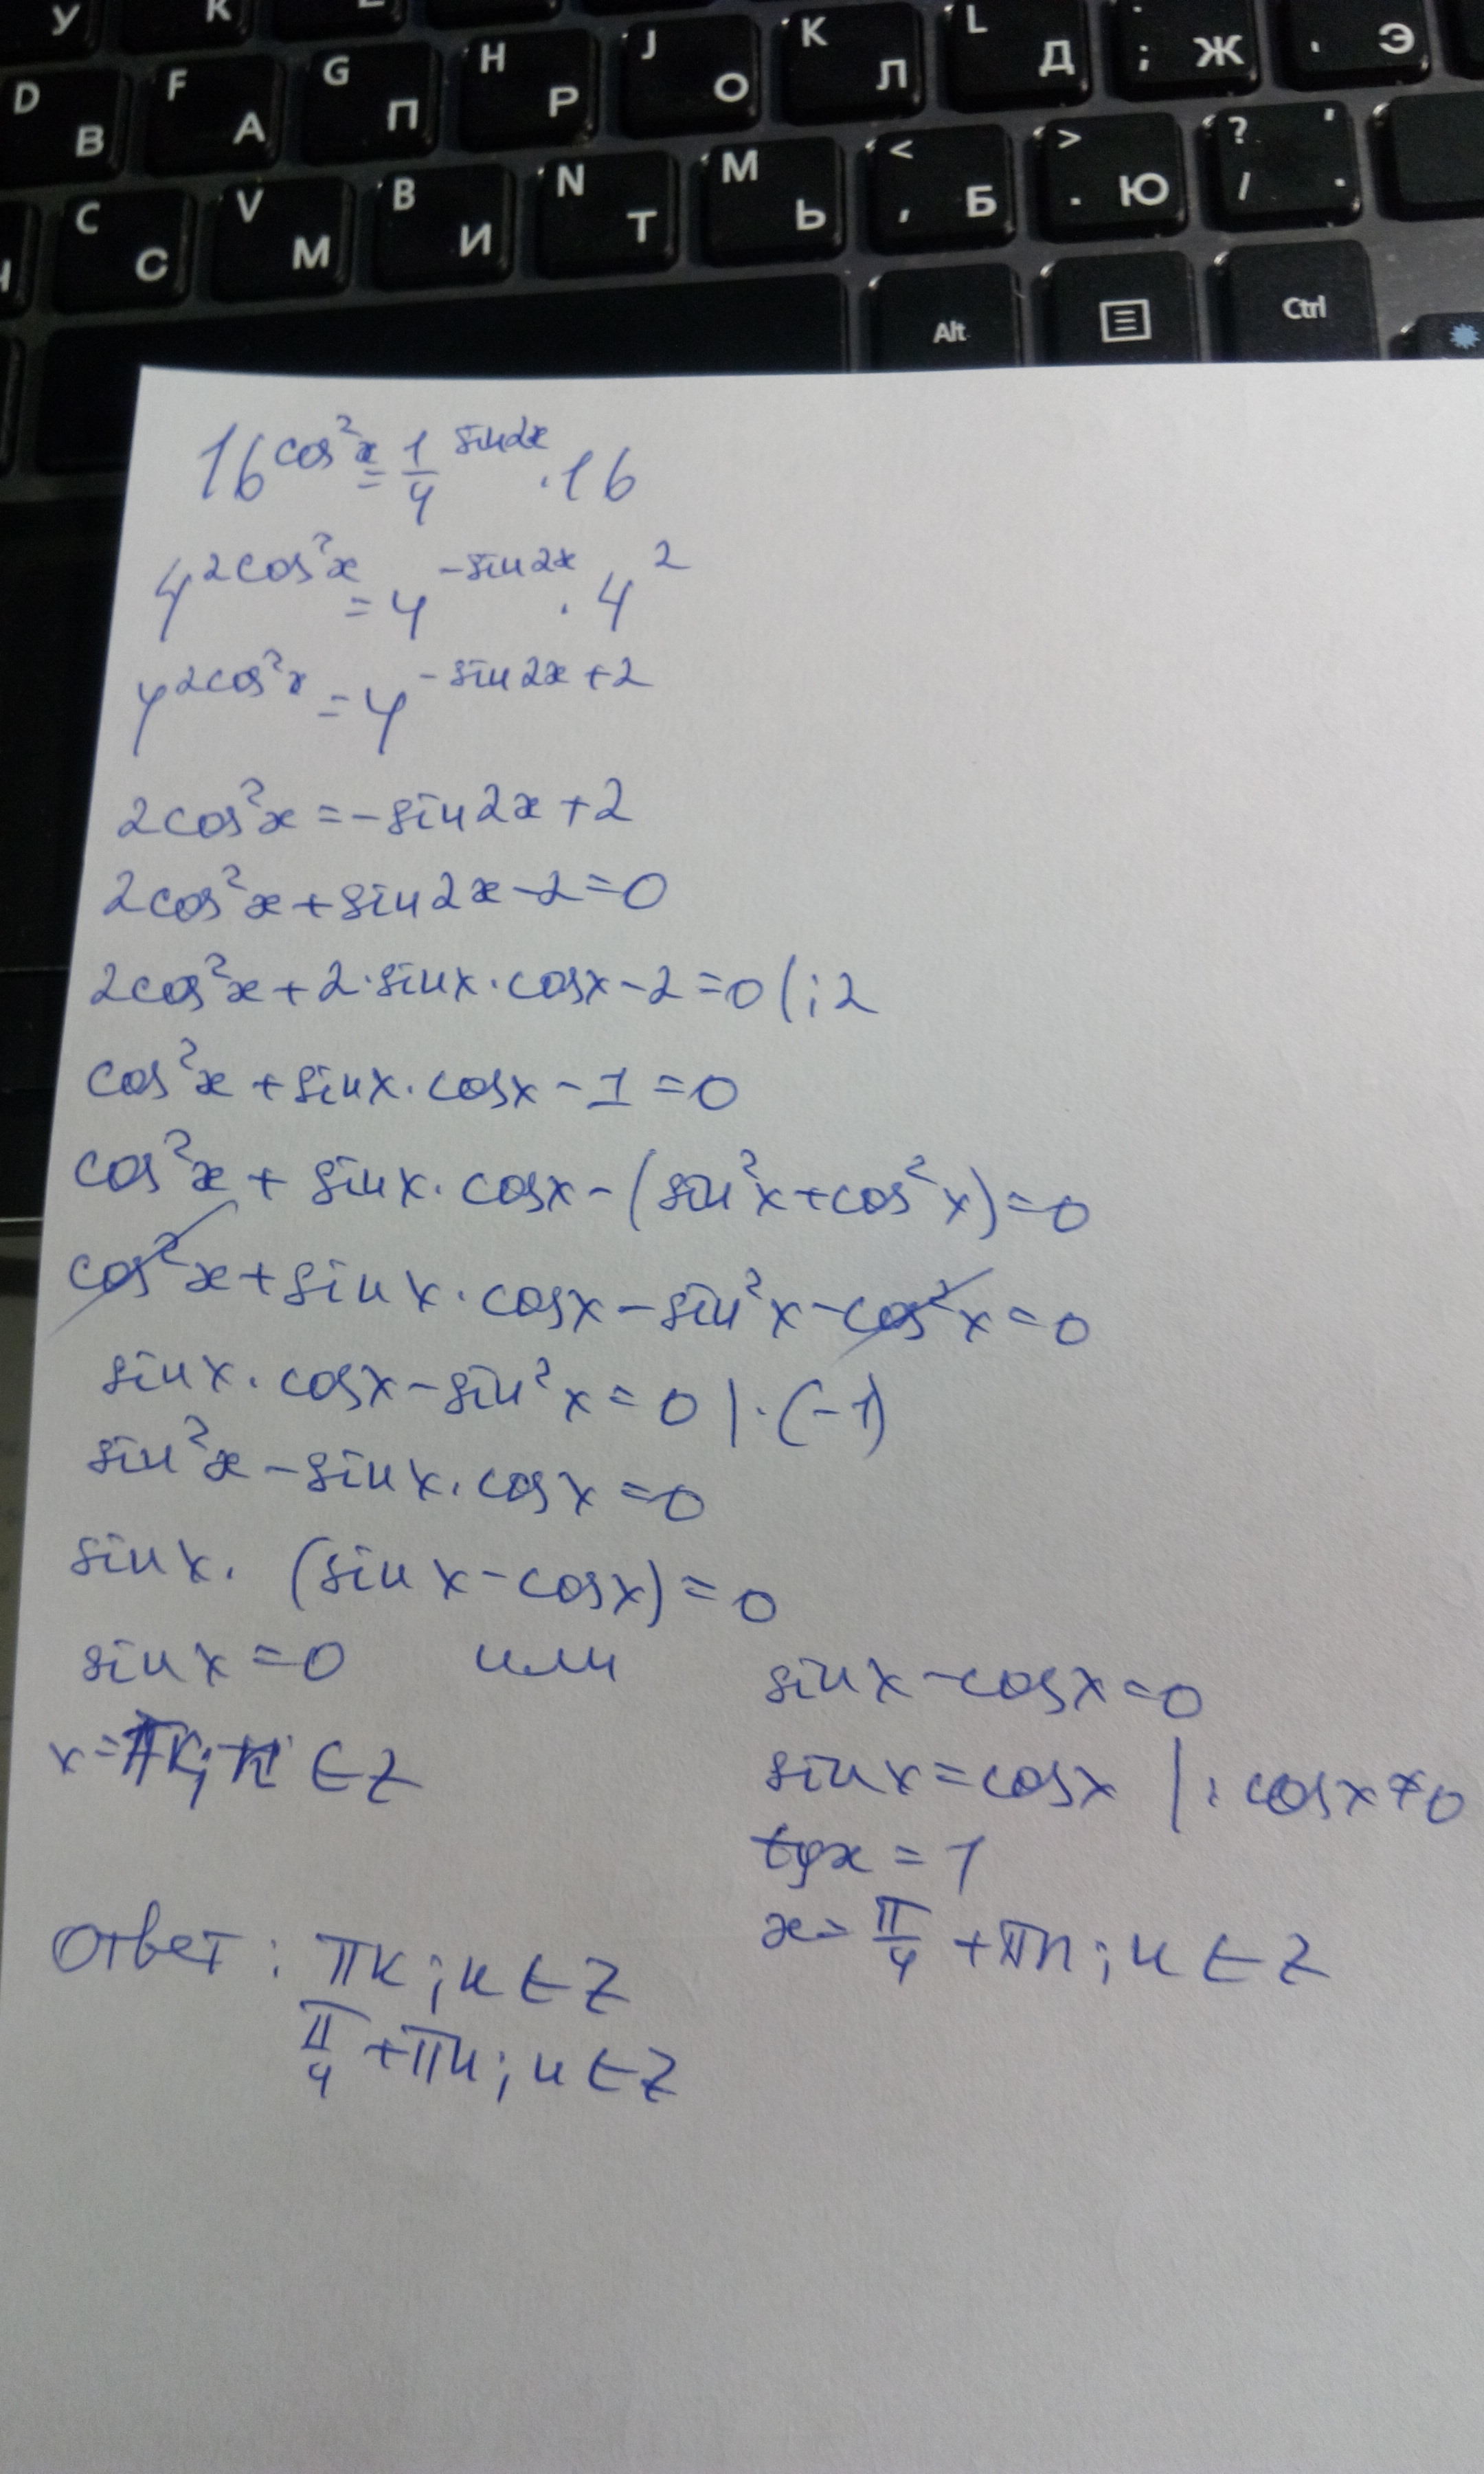 У K
D В F А G П H Р J О K Л L Д ; Ж ' Э
C С V М B И N Т M Ь < , Б > . Ю ? / ' .
Alt Ctrl
16^cos²x = 1/4^sin2x · 16
4^2cos²x = 4^-sin2x · 4^2
4^2cos²x = 4^-sin2x+2
2cos²x = -sin2x+2
2cos²x+sin2x-2=0
2cos²x+2·sinx·cosx-2=0 |:2
cos²x+sinx·cosx-1=0
cos²x+sinx·cosx-(sin²x+cos²x)=0
cos²x+sinx·cosx-sin²x-cos²x=0
sinx·cosx-sin²x=0 |·(-1)
sin²x-sinx·cosx=0
sinx·(sinx-cosx)=0
sinx=0 или sinx-cosx=0
x=πк; ∈Z sinx=cosx |:cosx≠0
tgx=1
x=π/4+πn; n∈Z
Ответ: πк; к∈Z
π/4+πn; n∈Z